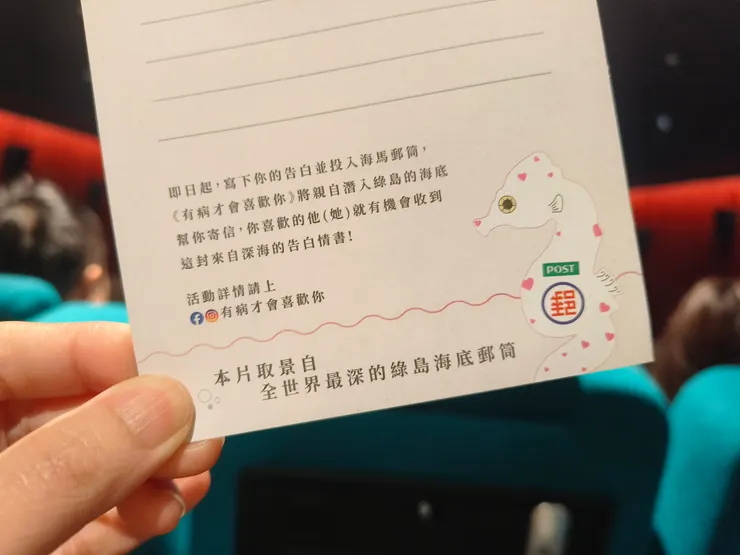 即日起，寫下你的告白並投入海馬郵筒，
《有病才會喜歡你》將親自潛入綠島的海底
幫你寄信，你喜歡的他(她)就有機會收到
這封來自深海的告白情書！
活動詳情請上
有病才會喜歡你
POST
郵
本片取景自
全世界最深的綠島海底郵筒